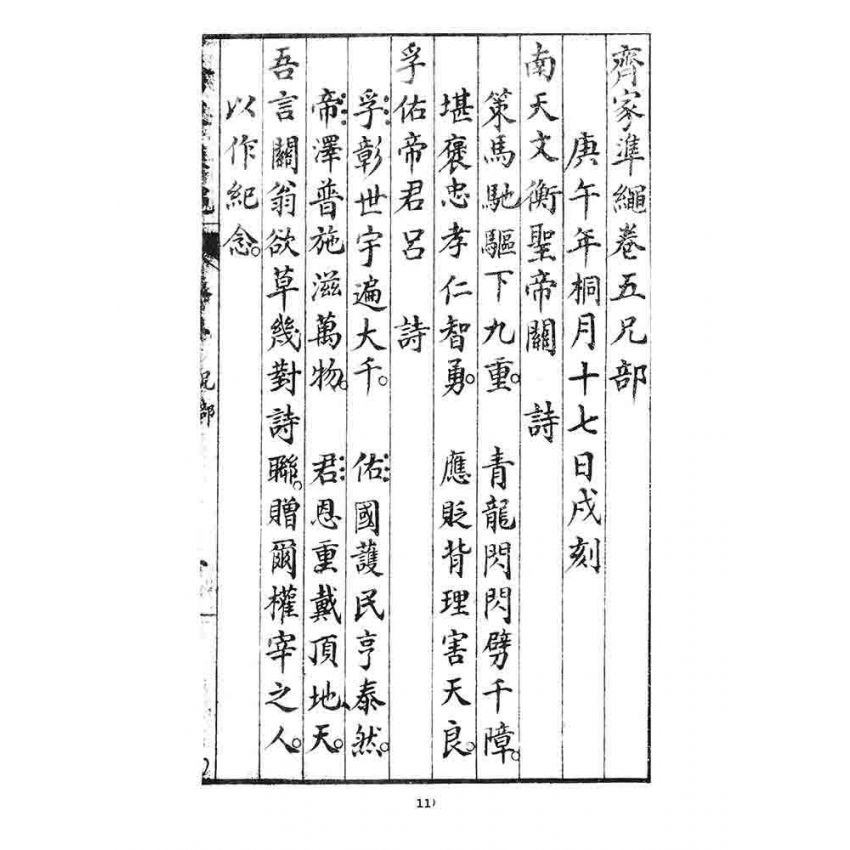 齊家準繩卷五兄部
庚午年桐月十七日戌刻
南天文衡聖帝關　詩
策馬馳驅下九重。　青龍閃閃劈千障。
堪褒忠孝仁智勇。　應貶背理害天良。
孚佑帝君呂　詩
孚彰世宇遍大千。　佑國護民亨泰然。
帝澤普施滋萬物。　君恩重戴頂地天。
吾言關翁欲草幾對詩聯。贈爾權宰之人。
以作紀念。
兄部
11)